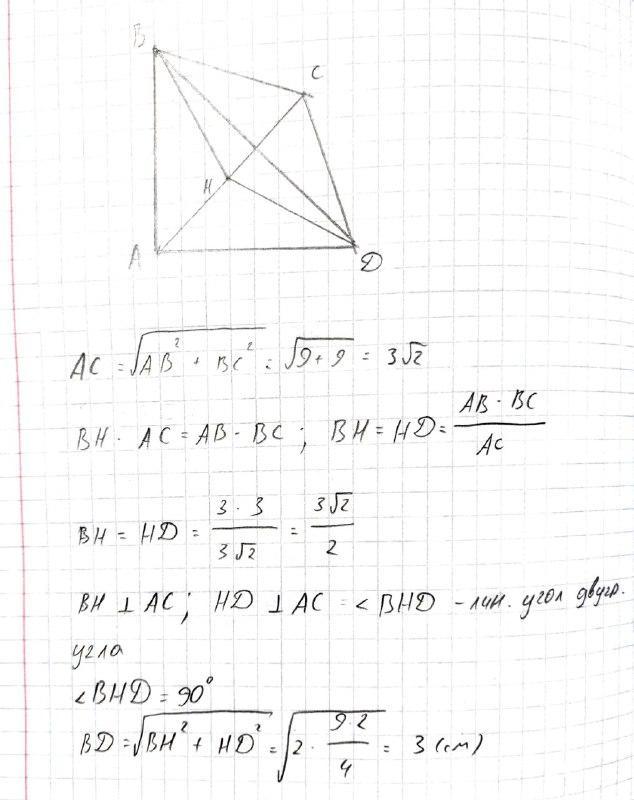 B
C
H
A
D
AC = √(AB² + BC²) = √(9+9) = 3√2
BH · AC = AB · BC ; BH = HD = AB · BC / AC
BH = HD = 3 · 3 / 3√2 = 3√2 / 2
BH ⊥ AC ; HD ⊥ AC = ∠BHD – лин. угол двугр.
угла
∠BHD = 90°
BD = √(BH² + HD²) = √(2 · 9·2 / 4) = 3 (см)